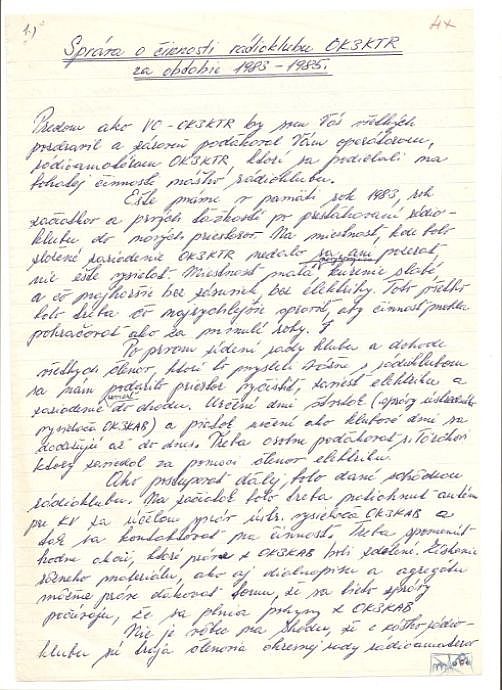 1.)
4x
Správa o činnosti rádioklubu OK3KTR
za obdobie 1983 – 1985.
Predom ako VO-OK3KTR by som Vás všetkých
pozdravil a zároveň poďakoval Vám operátorom,
rádioamatérom OK3KTR, ktorí sa podielali na
bohatej činnosti nášho rádioklubu.
Ešte máme v pamäti rok 1983, rok
začiatkov a prvých ťažkostí po presťahovaní rádio-
klubu do nových priestorov. Na miestnosť, kde bolo
zložené zariadenie OK3KTR nedalo sa ani pozerať
nie ešte vysielať. Miestnosť malá, kúrenie slabé,
a čo najhoršie bez zásuviek, bez elektriky. Toto všetko
bolo treba čo najrychlejšie spraviť, aby činnosť mohla
pokračovať ako za minulé roky.
Po prvom sedení rady klubu a dohode
všetkych členov, ktorí to mysleli vážne s rádioklubom
sa nám podarilo priestor vyčistiť, zaviesť elektriku a
zariadenie uviesť do chodu. Určené dni
vysielača OK3KAB) a piatok určení ako klubové dni sa
dodržujú až do dnes. Treba osobne poďakovať s.
ktorý zariadil za pomoci členov elektriku.
Ako postupovať ďalej, bolo dané schôdzou
rádioklubu. Na začiatok bolo treba natiahnuť anténu
pre KV za účelom správ ústr. vysielača OK3KAB a
tak sa kontaktovať na činnosť. Treba spomenúť
hodne akcií, ktoré práve z OK3KAB boli zdelené. Získanie
rôzneho materiálu, ako aj dialnopisu a agregátu
môžeme práve ďakovať tomu, že sa tieto správy
počúvajú, že sa plnia pokyny z OK3KAB
Nie je vôbec na škodu, že z nášho rádio-
klubu sú traja členovia okresnej rady rádioamatérov